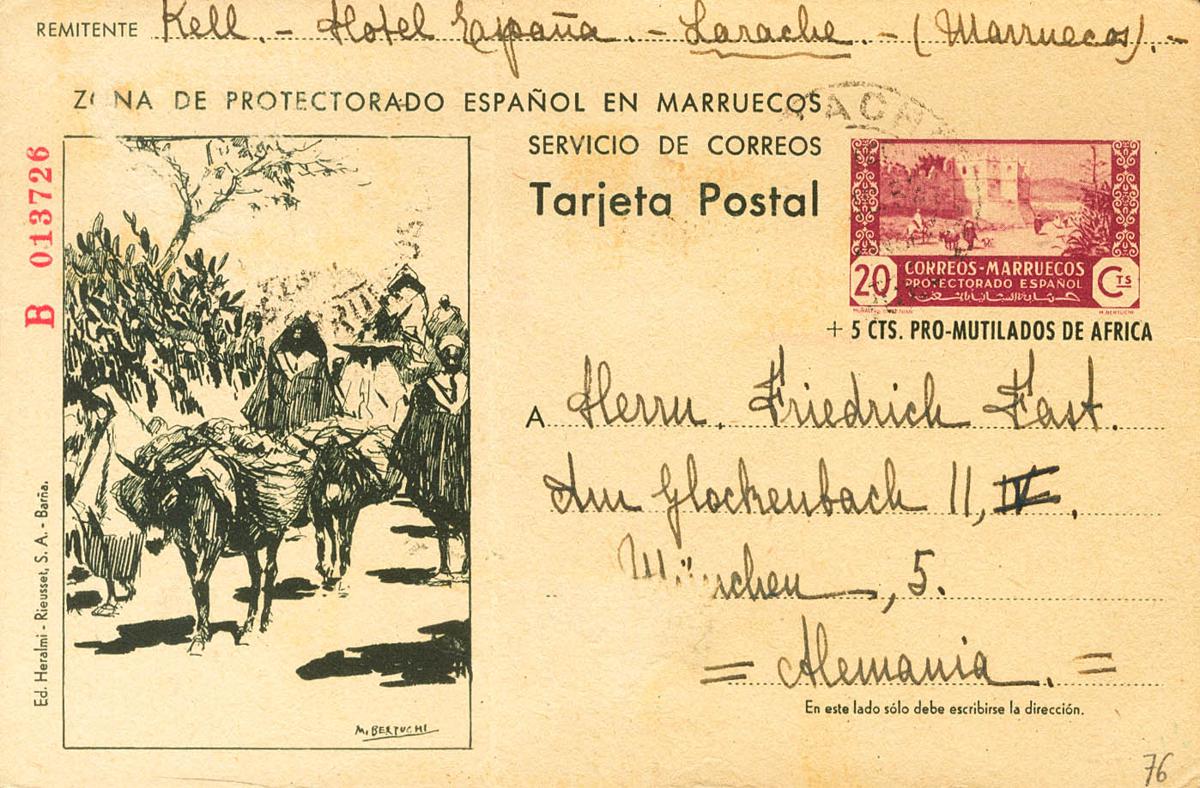 REMITENTE Kell. - Hotel España. - Larache. - (Marruecos). -
ZONA DE PROTECTORADO ESPAÑOL EN MARRUECOS
SERVICIO DE CORREOS
Tarjeta Postal
B 013726
20 CORREOS-MARRUECOS CTS
PROTECTORADO ESPAÑOL
M. BERTUCHI
+ 5 CTS. PRO-MUTILADOS DE AFRICA
A Herrn. Friedrich Fast.
Am Glockenbach 11, IV.
München, 5.
= Alemania. =
En este lado sólo debe escribirse la dirección.
Ed. Heralmi - Rieusset, S. A. - Barña.
M. BERTUCHI
76